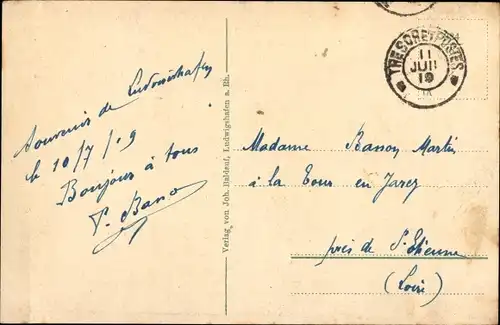 Souvenir de Ludwishafen
le 10/7/19
Bonjour à tous
P. Banon
Verlag von Joh. Rahlauf, Ludwigshafen a. Rh.
TRESOR ET POSTES
11
JUIL
19
Madame Banon Martin
à la Tour en Jarez
près de St Etienne
(Loire)